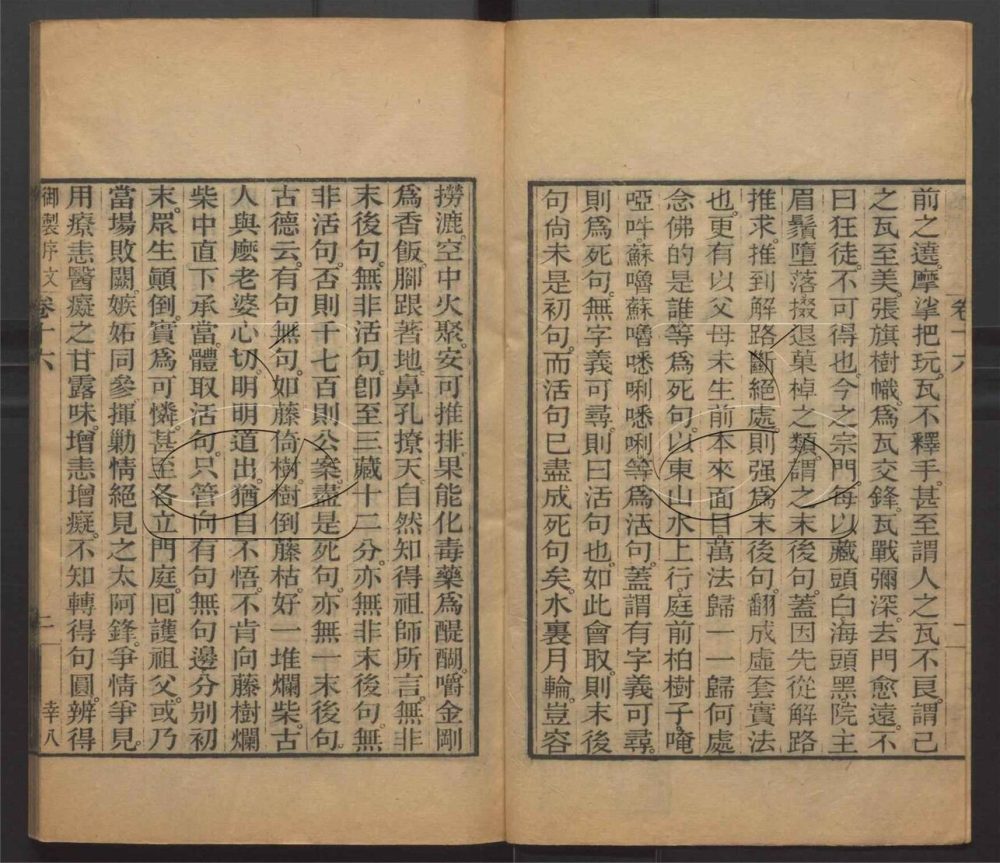 卷十六
二
前之邊摩挲把玩瓦不釋手甚至謂人之瓦不良謂己
之瓦至美張旗樹幟爲瓦交鋒瓦戰彌深去門愈遠不
曰狂徒不可得也今之宗門每以藏頭白海頭黑院主
眉鬚墮落掇退菓棹之類謂之末後句蓋因先從解路
推求推到解路斷絕處則强爲末後句翻成虛套實法
也更有以父母未生前本來面目萬法歸一一歸何處
念佛的是誰等爲死句以東山水上行庭前柏樹子唵
啞吽蘇嚕蘇嚕悉唎悉唎等爲活句蓋謂有字義可尋
則爲死句無字義可尋則曰活句也如此會取則末後
句尚未是初句而活句巳盡成死句矣水裏月輪豈容
撈漉空中火聚安可推排果能化毒藥爲醍醐嚼金剛
爲香飯腳跟著地鼻孔撩天自然知得祖師所言無非
末後句無非活句卽至三藏十二分亦無非末後句無
非活句否則千七百則公案盡是死句亦無一末後句
古德云有句無句如藤倚樹樹倒藤枯好一堆爛柴古
人與麽老婆心切明明道出猶自不悟不肯向藤樹爛
柴中直下承當體取活句只管向有句無句邊分别初
末眾生顚倒實爲可憐甚至各立門庭囘護祖父或乃
當場敗闕嫉妬同參揮勦情絕見之太阿鋒爭情爭見
用療恚醫癡之甘露味增恚增癡不知轉得句圓辨得
御製序文 卷十六 二 幸八